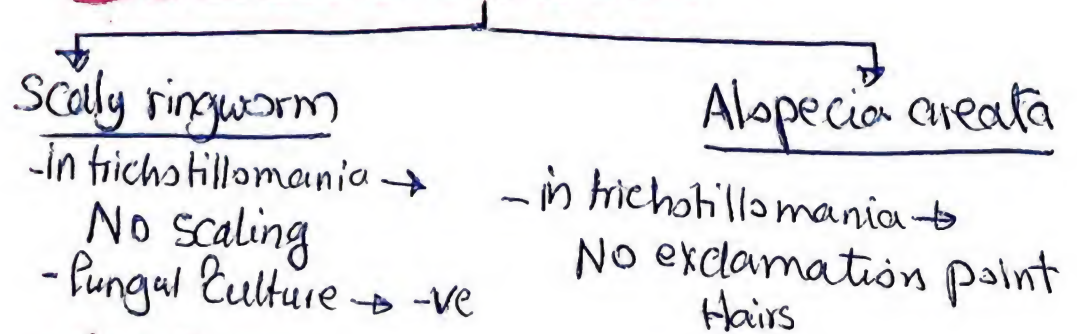 Scaly ringworm
-in trichotillomania →
No scaling
- fungal Culture → -ve
Alopecia areata
- in trichotillomania →
No exclamation point
Hairs